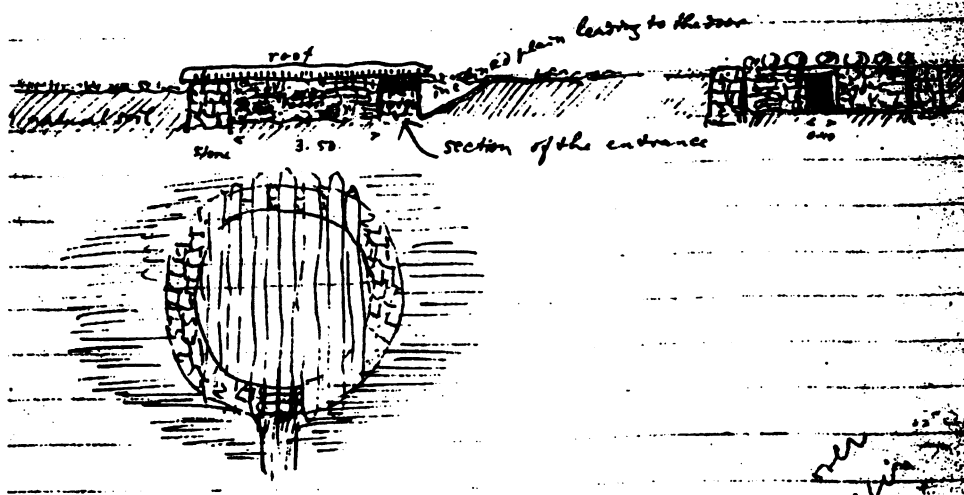 roof
plain leading to the door
natural soil
stone
3.50
section of the entrance
0.40